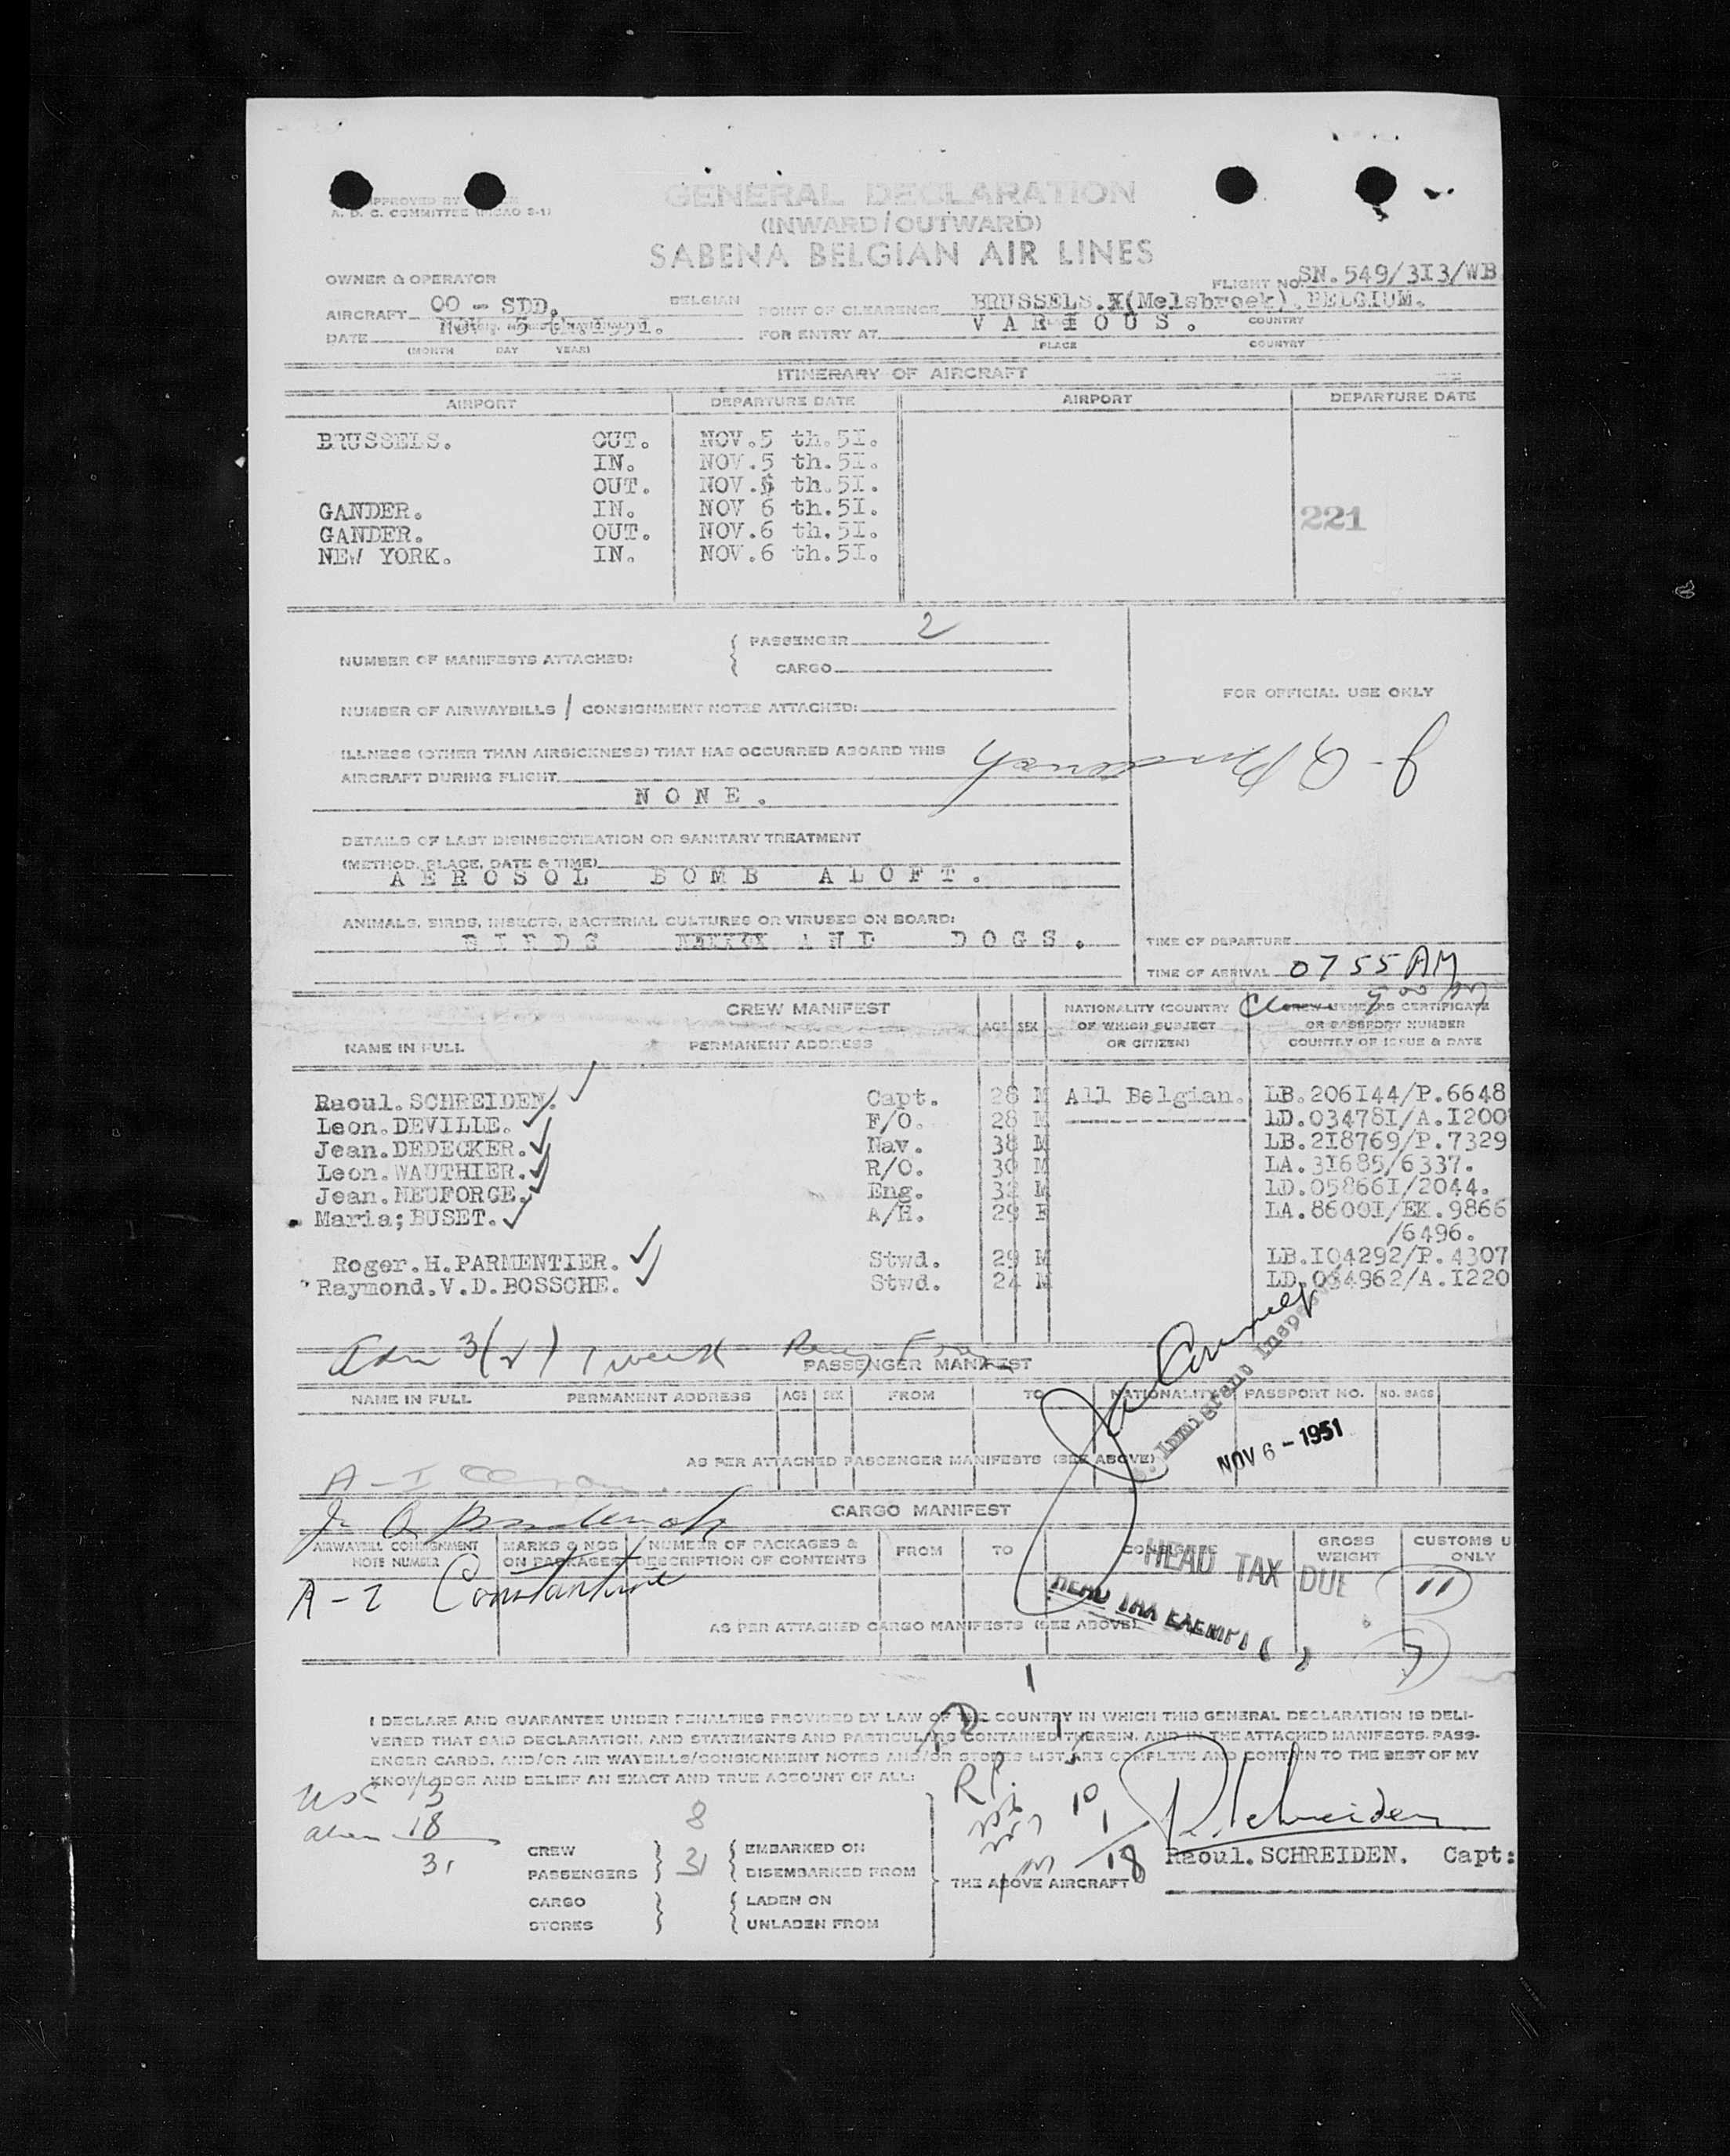 APPROVED BY
A. D. C. COMMITTEE (PICAO S-1)
GENERAL DECLARATION
(INWARD/OUTWARD)
SABENA BELGIAN AIR LINES
OWNER & OPERATOR
FLIGHT NO. SN.549/3I3/WB
AIRCRAFT OO - SDD. BELGIAN
POINT OF CLEARENCE BRUSSELS.X(Melsbroek).BELGIUM.
DATE NOV. 5 1951.
FOR ENTRY AT VARIOUS. COUNTRY
(MONTH DAY YEAR)
PLACE COUNTRY
ITINERARY OF AIRCRAFT
AIRPORT DEPARTURE DATE AIRPORT DEPARTURE DATE
BRUSSELS. OUT. NOV.5 th.5I.
IN. NOV.5 th.5I.
OUT. NOV. th.5I.
GANDER. IN. NOV 6 th.5I.
221
GANDER. OUT. NOV.6 th.5I.
NEW YORK. IN. NOV.6 th.5I.
NUMBER OF MANIFESTS ATTACHED:
PASSENGER 2
CARGO
FOR OFFICIAL USE ONLY
NUMBER OF AIRWAYBILLS / CONSIGNMENT NOTES ATTACHED:
ILLNESS (OTHER THAN AIRSICKNESS) THAT HAS OCCURRED ABOARD THIS
AIRCRAFT DURING FLIGHT
NONE.
DETAILS OF LAST DISINSECTIZATION OR SANITARY TREATMENT
(METHOD, PLACE, DATE & TIME)
AEROSOL BOMB ALOFT.
ANIMALS, BIRDS, INSECTS, BACTERIAL CULTURES OR VIRUSES ON BOARD:
BIRDS AND DOGS.
TIME OF DEPARTURE
TIME OF ARRIVAL 0755 AM
CREW MANIFEST
NAME IN FULL PERMANENT ADDRESS AGE SEX
NATIONALITY (COUNTRY
OF WHICH SUBJECT
OR CITIZEN)
CREW MEMBERS CERTIFICATE
OR PASSPORT NUMBER
COUNTRY OF ISSUE & DATE
Raoul.SCHREIDEN. Capt. 28 M All Belgian. LB.206I44/P.6648
Leon.DEVILLE. F/O. 28 M LD.03478I/A.I200
Jean.DEDECKER. Nav. 38 M LB.2I8769/P.7329
Leon.WAUTHIER. R/O. 30 M LA.3I685/6337.
Jean.NEUFORGE. Eng. 32 M LD.05866I/2044.
Maria;BUSET. A/H. 29 F LA.8600I/EK.9866
/6496.
Roger.H.PARMENTIER. Stwd. 29 M LB.I04292/P.4307
Raymond.V.D.BOSSCHE. Stwd. 24 M LD.034962/A.I220
Immigrant Inspector
PASSENGER MANIFEST
NAME IN FULL PERMANENT ADDRESS AGE SEX FROM TO NATIONALITY PASSPORT NO. NO. BAGS
NOV 6 - 1951
AS PER ATTACHED PASSENGER MANIFESTS (SEE ABOVE)
CARGO MANIFEST
AIRWAYBILL CONSIGNMENT
NOTE NUMBER
MARKS & NOS
ON PACKAGES
NUMBER OF PACKAGES &
DESCRIPTION OF CONTENTS
FROM TO CONSIGNEE
GROSS
WEIGHT
CUSTOMS U
ONLY
HEAD TAX DUE 11
A-2 Constantine
HEAD TAX EXEMPT ( )
AS PER ATTACHED CARGO MANIFESTS (SEE ABOVE)
7
I DECLARE AND GUARANTEE UNDER PENALTIES PROVIDED BY LAW OF THE COUNTRY IN WHICH THIS GENERAL DECLARATION IS DELI-
VERED THAT SAID DECLARATION, AND STATEMENTS AND PARTICULARS CONTAINED THEREIN, AND IN THE ATTACHED MANIFESTS, PASS-
ENGER CARDS, AND/OR AIR WAYBILLS/CONSIGNMENT NOTES AND/OR STORES LIST ARE COMPLETE AND CONTAIN TO THE BEST OF MY
KNOWLEDGE AND BELIEF AN EXACT AND TRUE ACCOUNT OF ALL:
USC 13
alien 18
31
8
31
CREW
PASSENGERS
CARGO
STORES
EMBARKED ON
DISEMBARKED FROM
LADEN ON
UNLADEN FROM
R.P. 10
1
18
THE ABOVE AIRCRAFT
R. Schreiden
Raoul.SCHREIDEN. Capt: